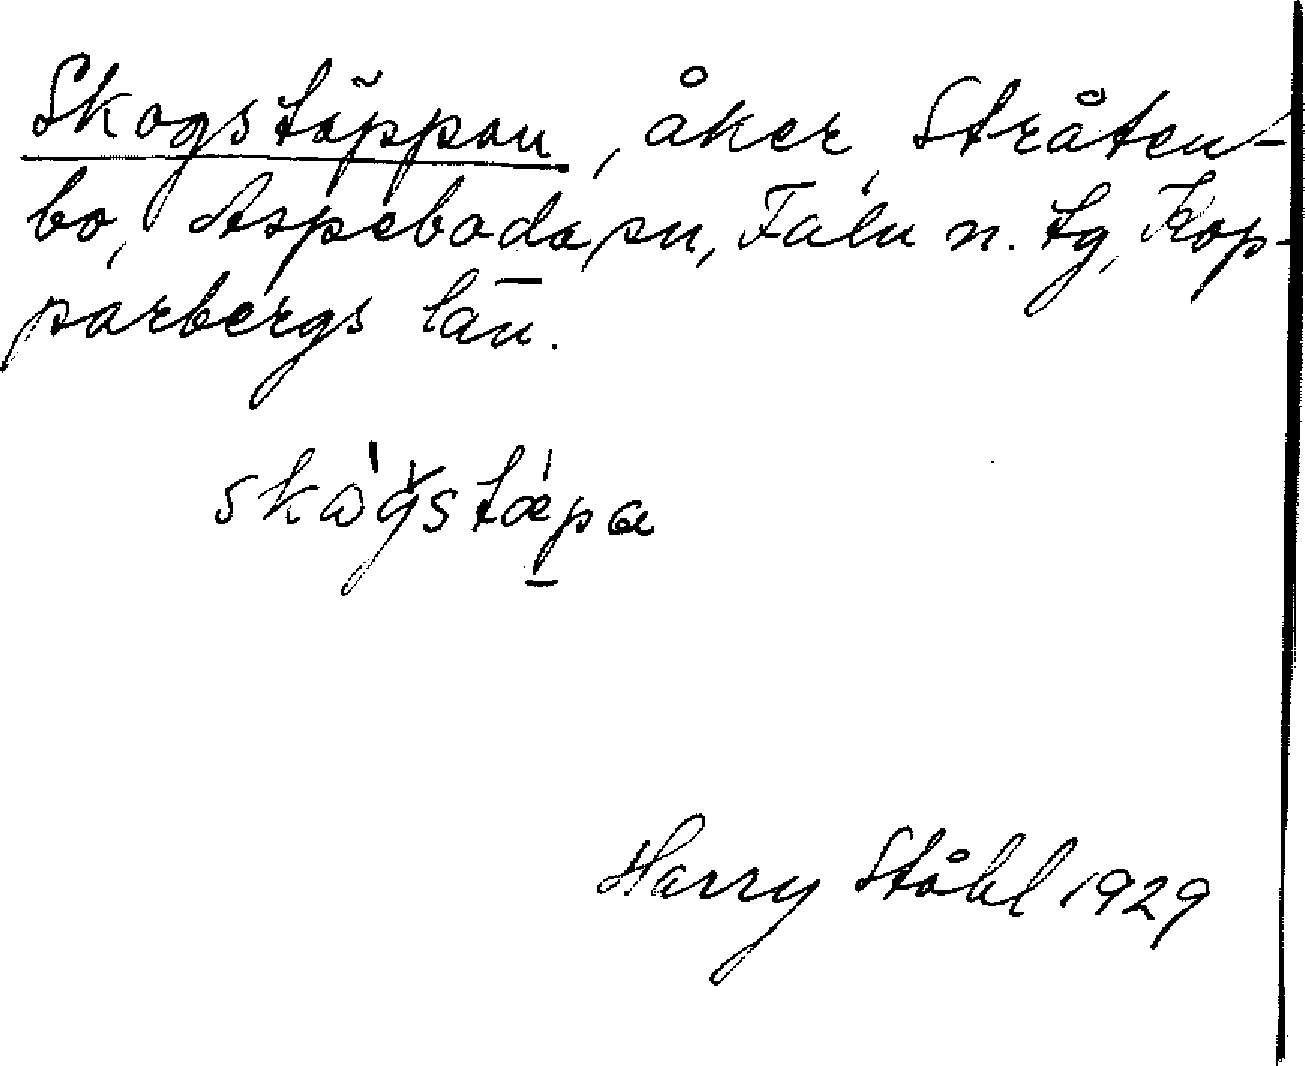 Skogstäppan, åker, Stråten-
bo, Aspeboda sn, Falu n. tg, Kop-
parbergs län.
Harry Ståhl 1929